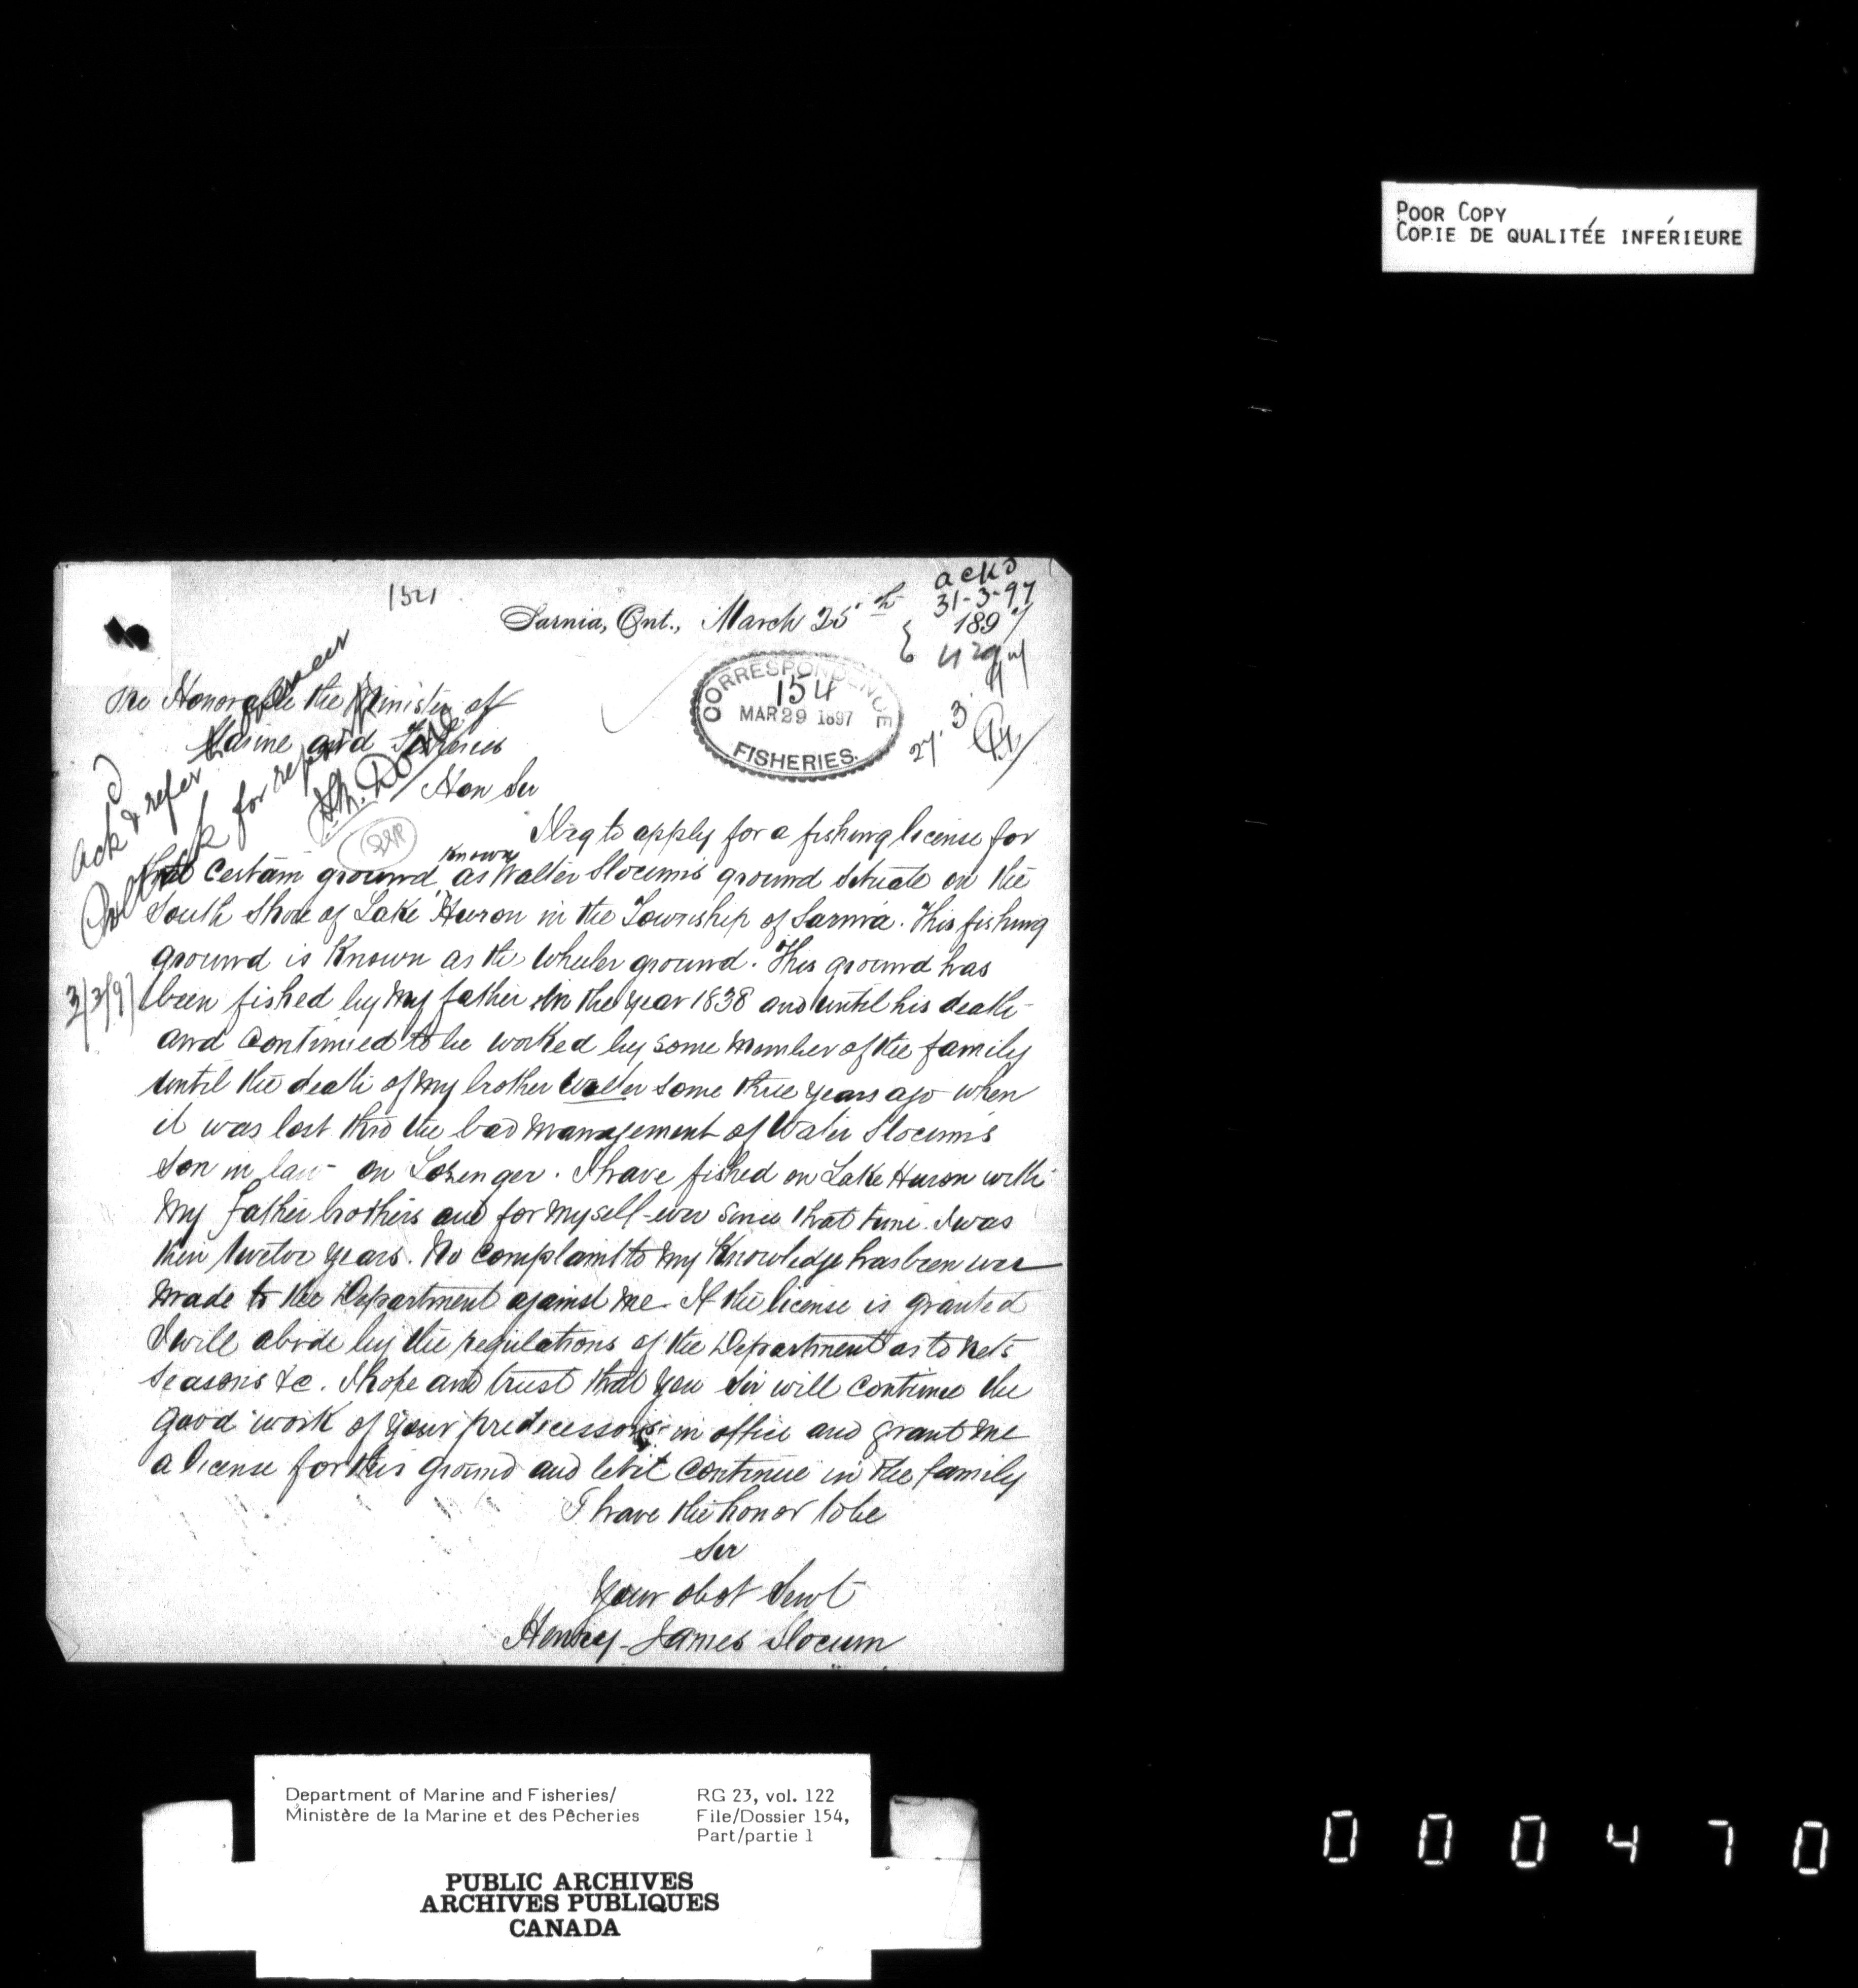 POOR COPY
COPIE DE QUALITÉE INFÉRIEURE
1521
ackd
31-3-97
Sarnia, Ont., March 25th 1897
CORRESPONDENCE
154
MAR 29 1897
FISHERIES.
27.3
The Honorable the Minister of
Marine and Fisheries
Hon Sir
Ack & refer
for report
I beg to apply for a fishing license for
that certain ground known as Walter Slocum's ground situate on the
South Shore of Lake Huron in the Township of Sarnia. This fishing
ground is known as the Wheeler ground. This ground has
been fished by my father in the year 1838 and until his death
and continued to be worked by some member of the family
until the death of my brother Walter some three years ago when
it was lost thro the bad management of Water Slocum's
son in law on Lozenger. I have fished on Lake Huron with
my father brothers and for myself ever since that time. I was
then twelve years. No complaint to my knowledge has been ever
made to the Department against me. If the license is granted
I will abide by the regulations of the Department as to nets
seasons &c. I hope and trust that you Sir will continue the
good work of your predecessors in office and grant me
a license for this ground and let it continue in the family
I have the honor to be
Sir
Your obdt Servt
Henry James Slocum
Department of Marine and Fisheries/
Ministère de la Marine et des Pêcheries
RG 23, vol. 122
File/Dossier 154,
Part/partie 1
PUBLIC ARCHIVES
ARCHIVES PUBLIQUES
CANADA
000470